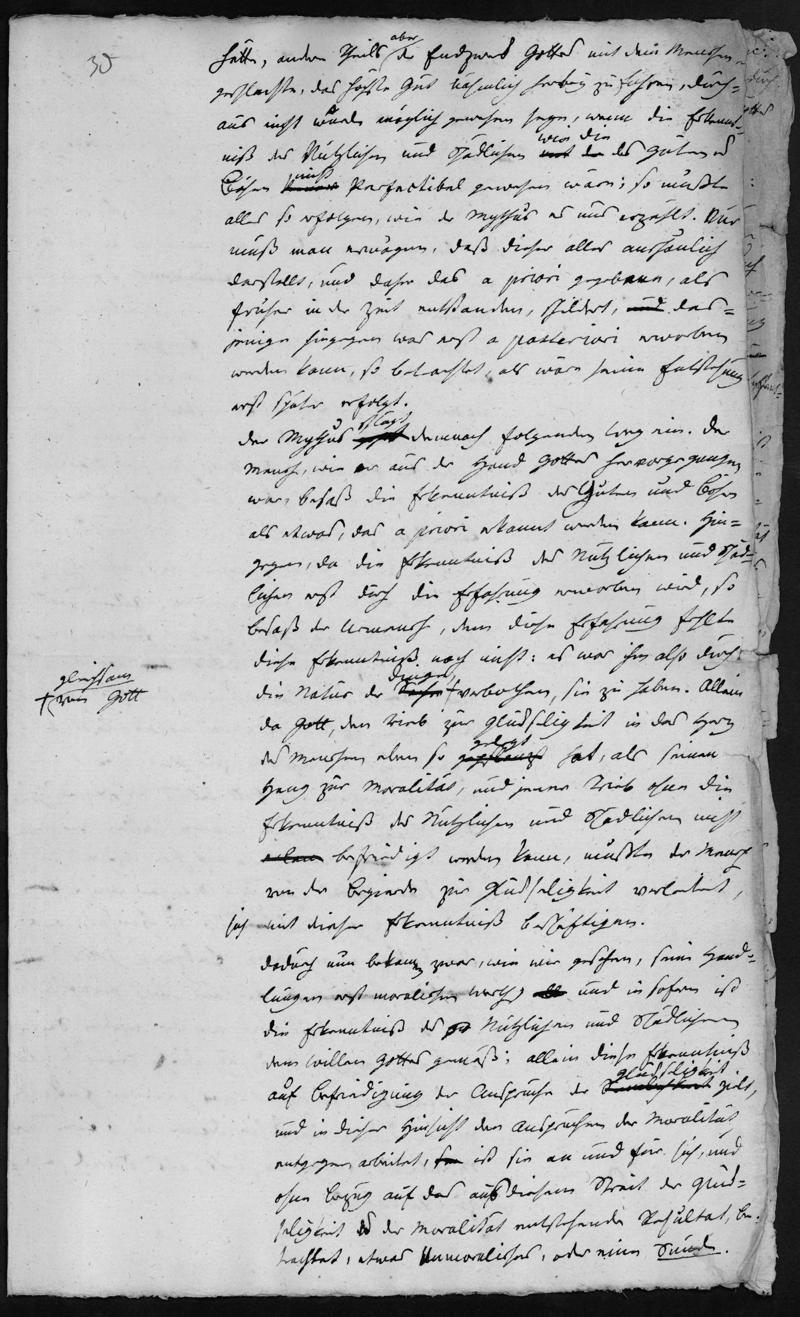 30
hätte, andern Theils aber der Endzweck Gottes mit dem Menschen
geschlechte, das höchste Gut nähmlich herbey zu führen, durch=
aus nicht würde möglich gewesen seyn, wenn die Erkennt=
niß des Nützlichen und Schädlichen wie die des Guten u
Bösen nicht Perfectibel gewesen wäre; so mußte
alles so erfolgen, wie der Mythus es uns erzählt. Nur
muß man erwägen, daß dieser alles anschaulich
darstellt, und daher das a priori gegebene, als
früher in der Zeit entstanden, schildert, und das=
jenige hingegen was erst a posteriori erworben
werden kann, so betrachtet, als wäre seine Entstehung
erst später erfolgt.
Der Mythus schlägt demnach folgenden Weg ein. Der
Mensch, wie er aus der Hand Gottes hervorgegangen
war, besaß die Erkenntniß des Guten und Bösen
als etwas, das a priori erkannt werden kann. Hin=
gegen, da die Erkenntniß des Nützlichen und Schäd=
lichen erst durch die Erfahrung erworben wird, so
besaß der Urmensch, dem diese Erfahrung fehlte
diese Erkenntniß noch nicht: es war ihm also durch
die Natur der Dinge, + verbothen, sie zu haben. Allein
+ gleichsam
von Gott
da Gott, den Trieb zur Glückseligkeit in das Herz
des Menschen eben so gelegt hat, als seinen
Hang zur Moralität, und jener Trieb ohne die
Erkenntniß des Nützlichen und Schädlichen nicht
befriedigt werden kann, mußte der Mensch
von der Begierde zur Glückseligkeit verleitet,
sich mit dieser Erkenntniß beschäftigen.
Dadurch nun bekamen zwar, wie wir gesehen, seine Hand=
lungen erst moralischen Werth, und in sofern ist
die Erkenntniß des Nützlichen und Schädlichen
dem Willen Gottes gemäß; allein diese Erkenntniß
auf Befriedigung der Ansprüche der Glückseligkeit geht,
und in dieser Hinsicht den Ansprüchen der Moralität
entgegen arbeitet, ist sie an und für sich, und
ohne Bezug auf das aus diesem Streit der Glück=
seligkeit der Moralität entstehende Resultat, be=
trachtet, etwas Unmoralisches, oder eine Sünde.